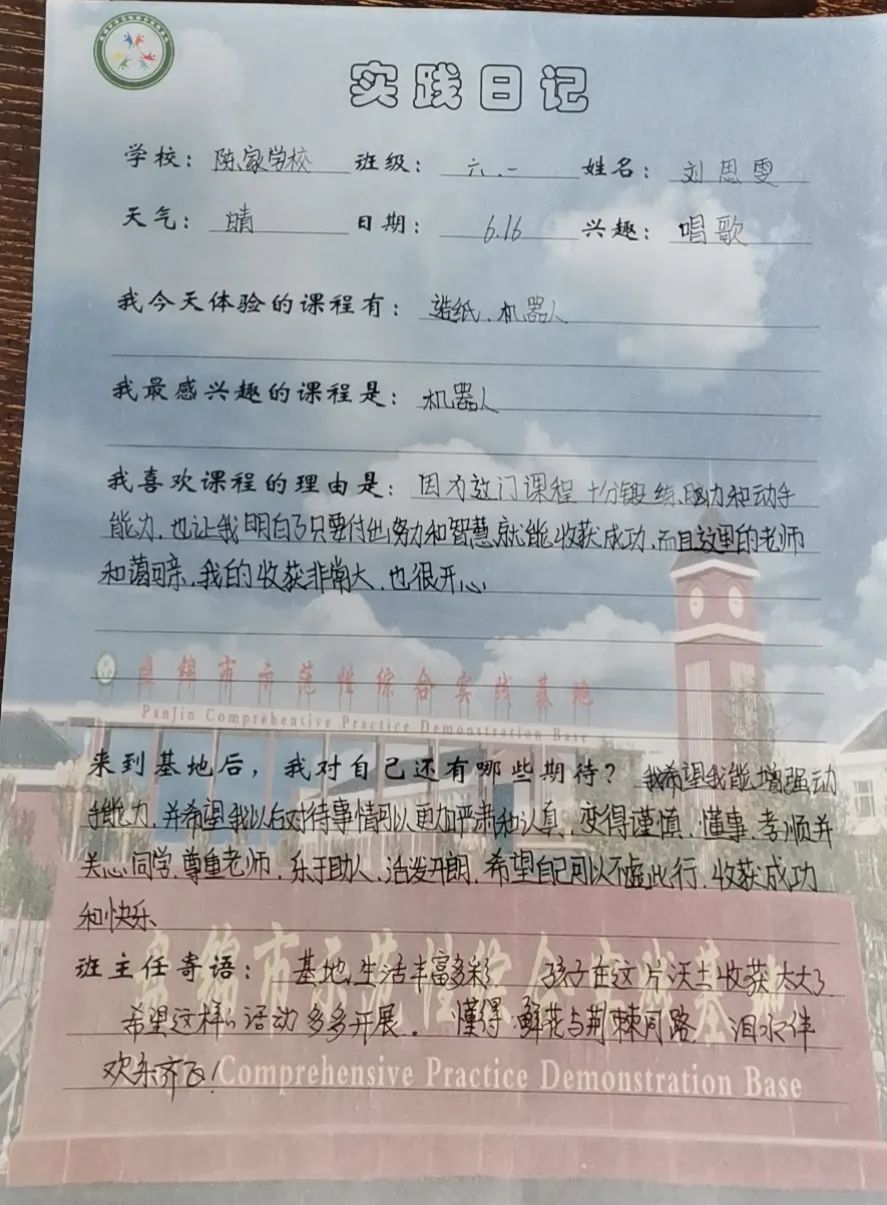 实践日记
学校：陈家学校 班级：六.一 姓名：刘思雯
天气：晴 日期：6.16 兴趣：唱歌
我今天体验的课程有：造纸、机器人
我最感兴趣的课程是：机器人
我喜欢课程的理由是：因为这门课程十分锻炼脑力和动手
能力，也让我明白了只要付出努力和智慧就能收获成功，而且这里的老师
和蔼可亲，我的收获非常大，也很开心
盘锦市示范性综合实践基地
PanJin Comprehensive Practice Demonstration Base
来到基地后，我对自己还有哪些期待？我希望我能增强动
手能力，并希望我以后对待事情可以更加严肃和认真，变得谨慎，懂事，孝顺并
关心同学，尊重老师，乐于助人，活泼开朗，希望自己可以不虚此行，收获成功
和快乐
班主任寄语：基地生活丰富多彩 孩子在这片沃土收获太大了
希望这样的活动多多开展。懂得鲜花与荆棘同路 泪水伴
欢乐齐飞！
盘锦市示范性综合实践基地
Comprehensive Practice Demonstration Base